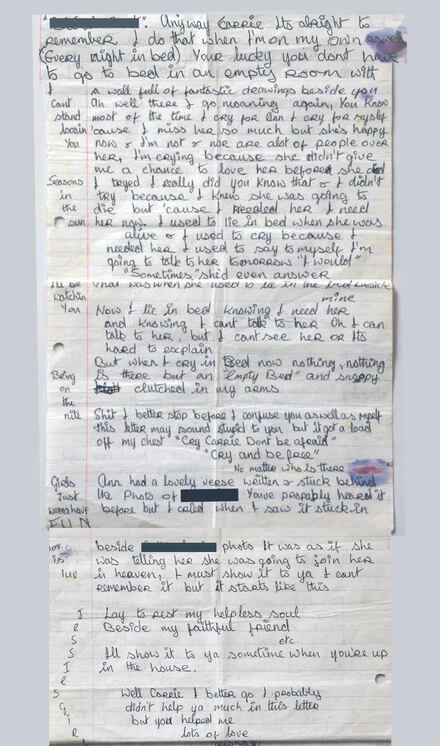 ". Anyway Carrie Its alright to
remember I do that when I'm on my own aswell
(Every night in bed) Your lucky you dont have
to go to bed in an empty room with
I a wall full of fantastic drawings beside you
Cant Ah well there I go moaning again, You know
stand most of the time I cry for Ann I cry for myself
loosin 'cause I miss her so much but she's happy
You now & I'm not & nor are alot of people over
her, I'm crying because she didn't give
me a chance to love her before she did
Seasons I tryed I really did you know that & I didn't
in try because I knew she was going to
the die but 'cause I needed her I need
sun her now. I used to lie in bed when she was
alive & I used to cry because I
needed her I used to say to myself I'm
going to talk to her tomorrow "I would"
"Sometimes," she'd even answer
I'll be that was when she used to lie in the bed beside
watchin mine
You Now I lie in bed knowing I need her
and knowing I cant talk to her Oh I can
talk to her, but I cant see her or Its
hard to explain
But when I cry in Bed now nothing, nothing
Bring is there but an "Empty Bed" and snoopy
on clutched in my arms
the
nite Shit I better stop before I confuse you aswell as myself
this letter may sound stupid to you, but it got a load
off my chest "Cry Carrie Dont be afraid"
"Cry and be free"
No matter who is there
Girls Ann had a lovely verse written & stuck behind
Just the Photo of You've propably heard it
wanna have before but I cried when I saw it stuck in
FUN
beside photo It was as if she
is was telling her she was going to join her
luv in heaven, I must show it to ya I cant
remember it but it starts like this
J Lay to rest my helpless soul
e Beside my faithful friend
S etc.
S I'll show it to ya sometime when you're up
I in the house.
e
S Well Carrie I better go I probably
G didn't help ya much in this letter
i but you helped me
R lots of love
L